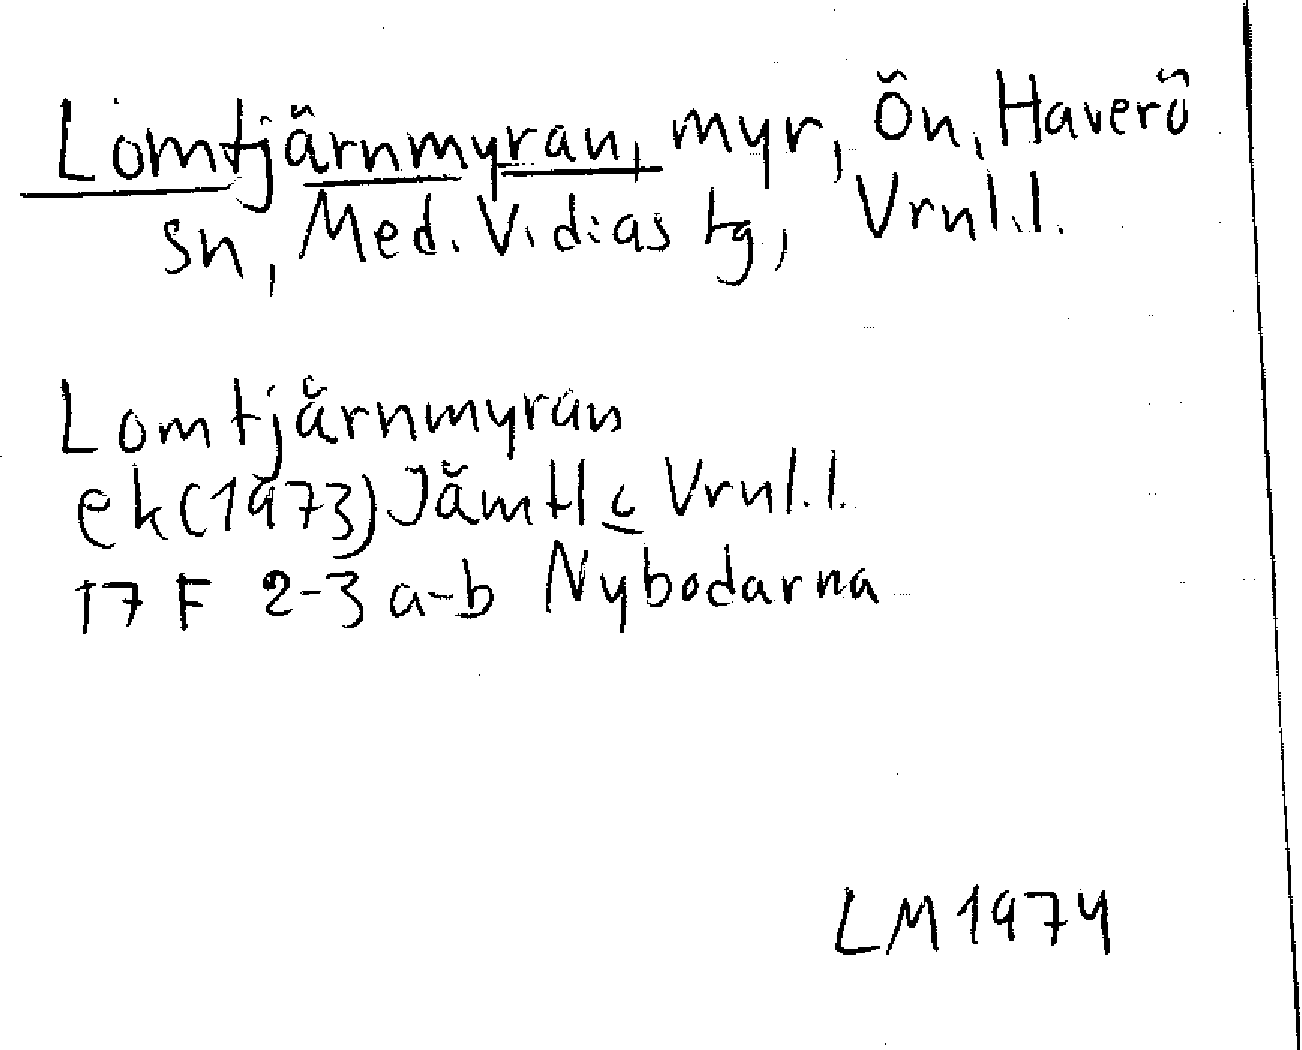 Lomtjärnmyran, myr, Ön, Haverö
sn, Med. V. d:as tg, Vrnl.l.
Lomtjärnmyran
ek(1973) Jämtl c Vrnl.l.
17 F 2-3 a-b Nybodarna
LM 1974